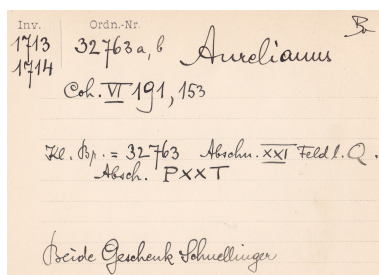 Inv. Ordn.-Nr. Br
1713 32763a, b Aurelianus
1714
Coh. VI 191, 153
Kl. Br. = 32763 Abschn. XXI Feld l. Q.
Absch. PXXT
Beide Geschenk Schnellinger